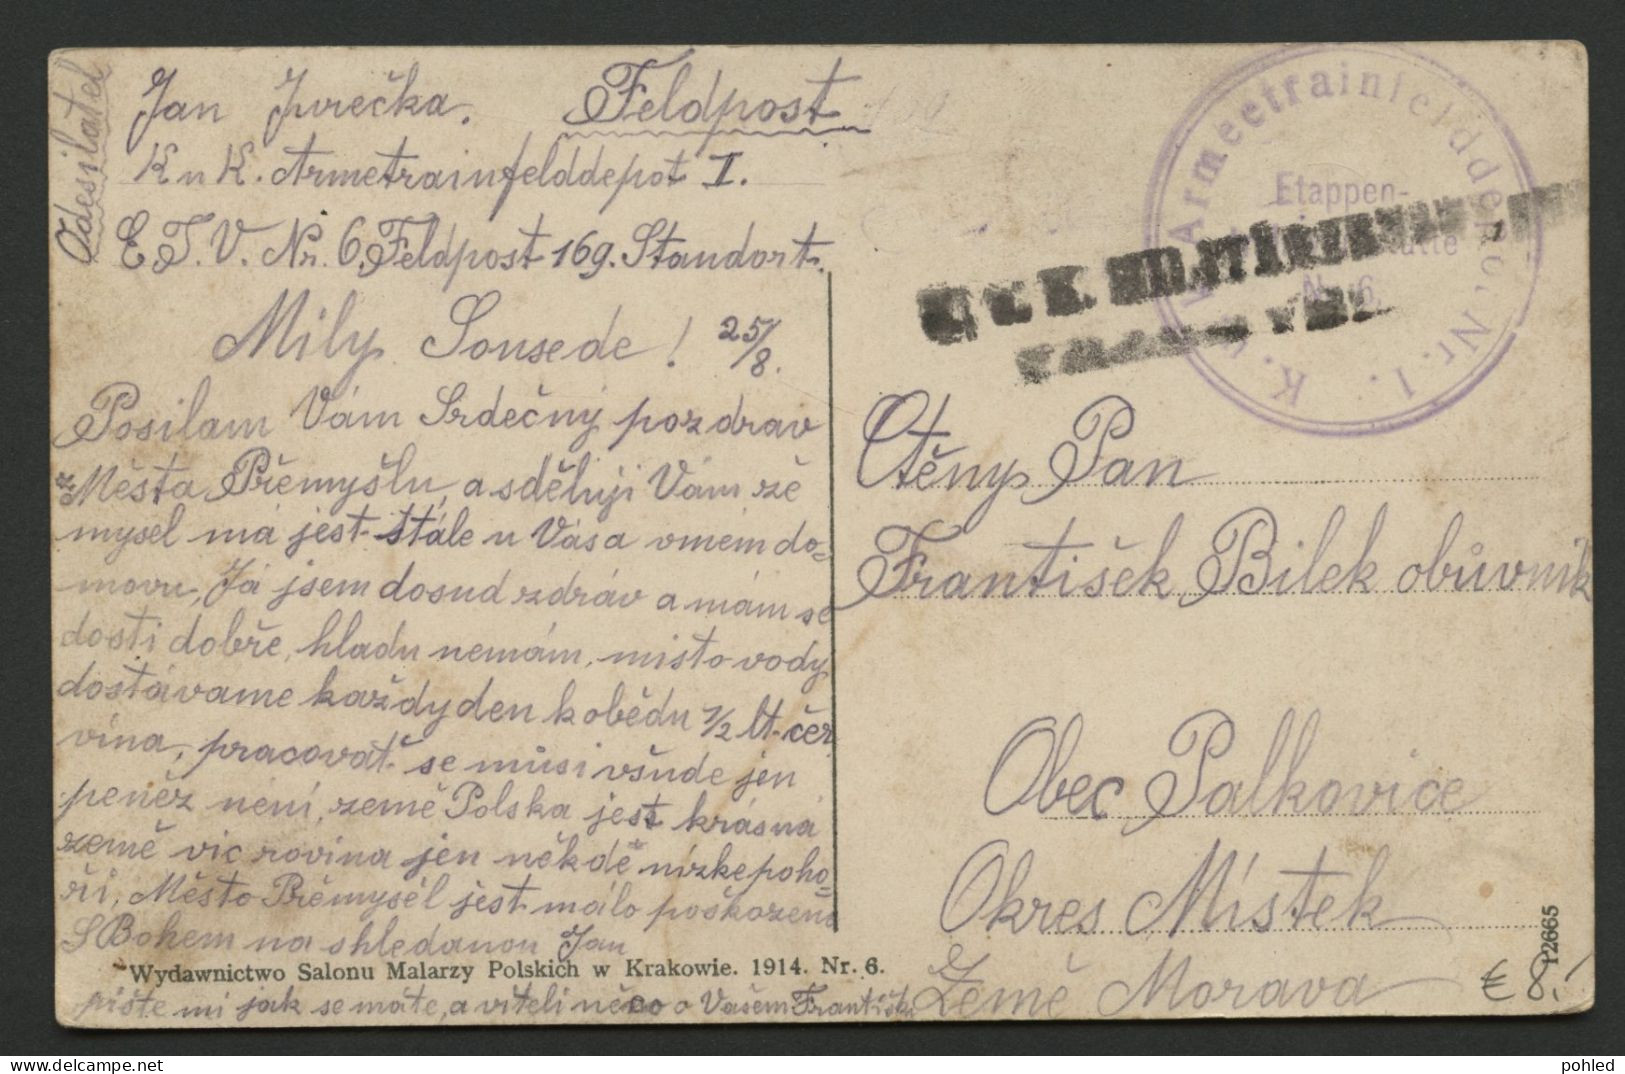 Odesilatel
Jan Jurečka. Feldpost
K u K. Armetrainfelddepot I.
E.T.V. Nr. 6, Feldpost 169. Standort.
Milý Sousede! 25/8.
Posilam Vám Srdečný pozdrav
Města Přěmyšlu, a sděluji Vám zě
mysel má jest stále u Vás a vmém do=
movu, Já jsem dosud zdráv a mám se
dosti dobře, hladu nemám, misto vody
dostávame každy den k obědu 1/2 lt. čer
vina, pracovať se musi všude jen
peněz neni, země Polska jest krásná
země vic rovina jen někdě nizke poho=
ři, Město Přěmysěl jest málo poškozené
S Bohem na shledanou Jan
Wydawnictwo Salonu Malarzy Polskich w Krakowie. 1914. Nr. 6.
pište mi jak se máte, a viteli něco o Vašem Františk
K. u. K. Armeetrainfelddepot Nr. 1.
Etappen-
Nr. 6
K. u. K. MILITÄRZENSUR
Ctěny Pan
František Bilek obůvnik
Obec Palkovice
Okres Místek
Země Morava
12665
€ 8,-
pohled